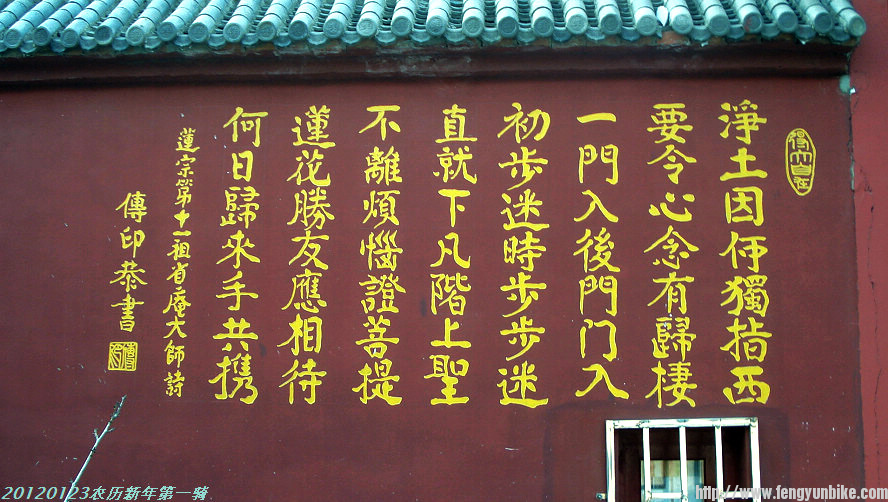 得大自在
淨土因何獨指西
要令心念有歸棲
一門入後門门入
初步迷時步步迷
直就下凡階上聖
不離煩惱證菩提
蓮花勝友應相待
何日歸來手共携
蓮宗第十一祖省庵大師詩
傳印恭書
20120123农历新年第一骑
http://www.fengyunbike.com